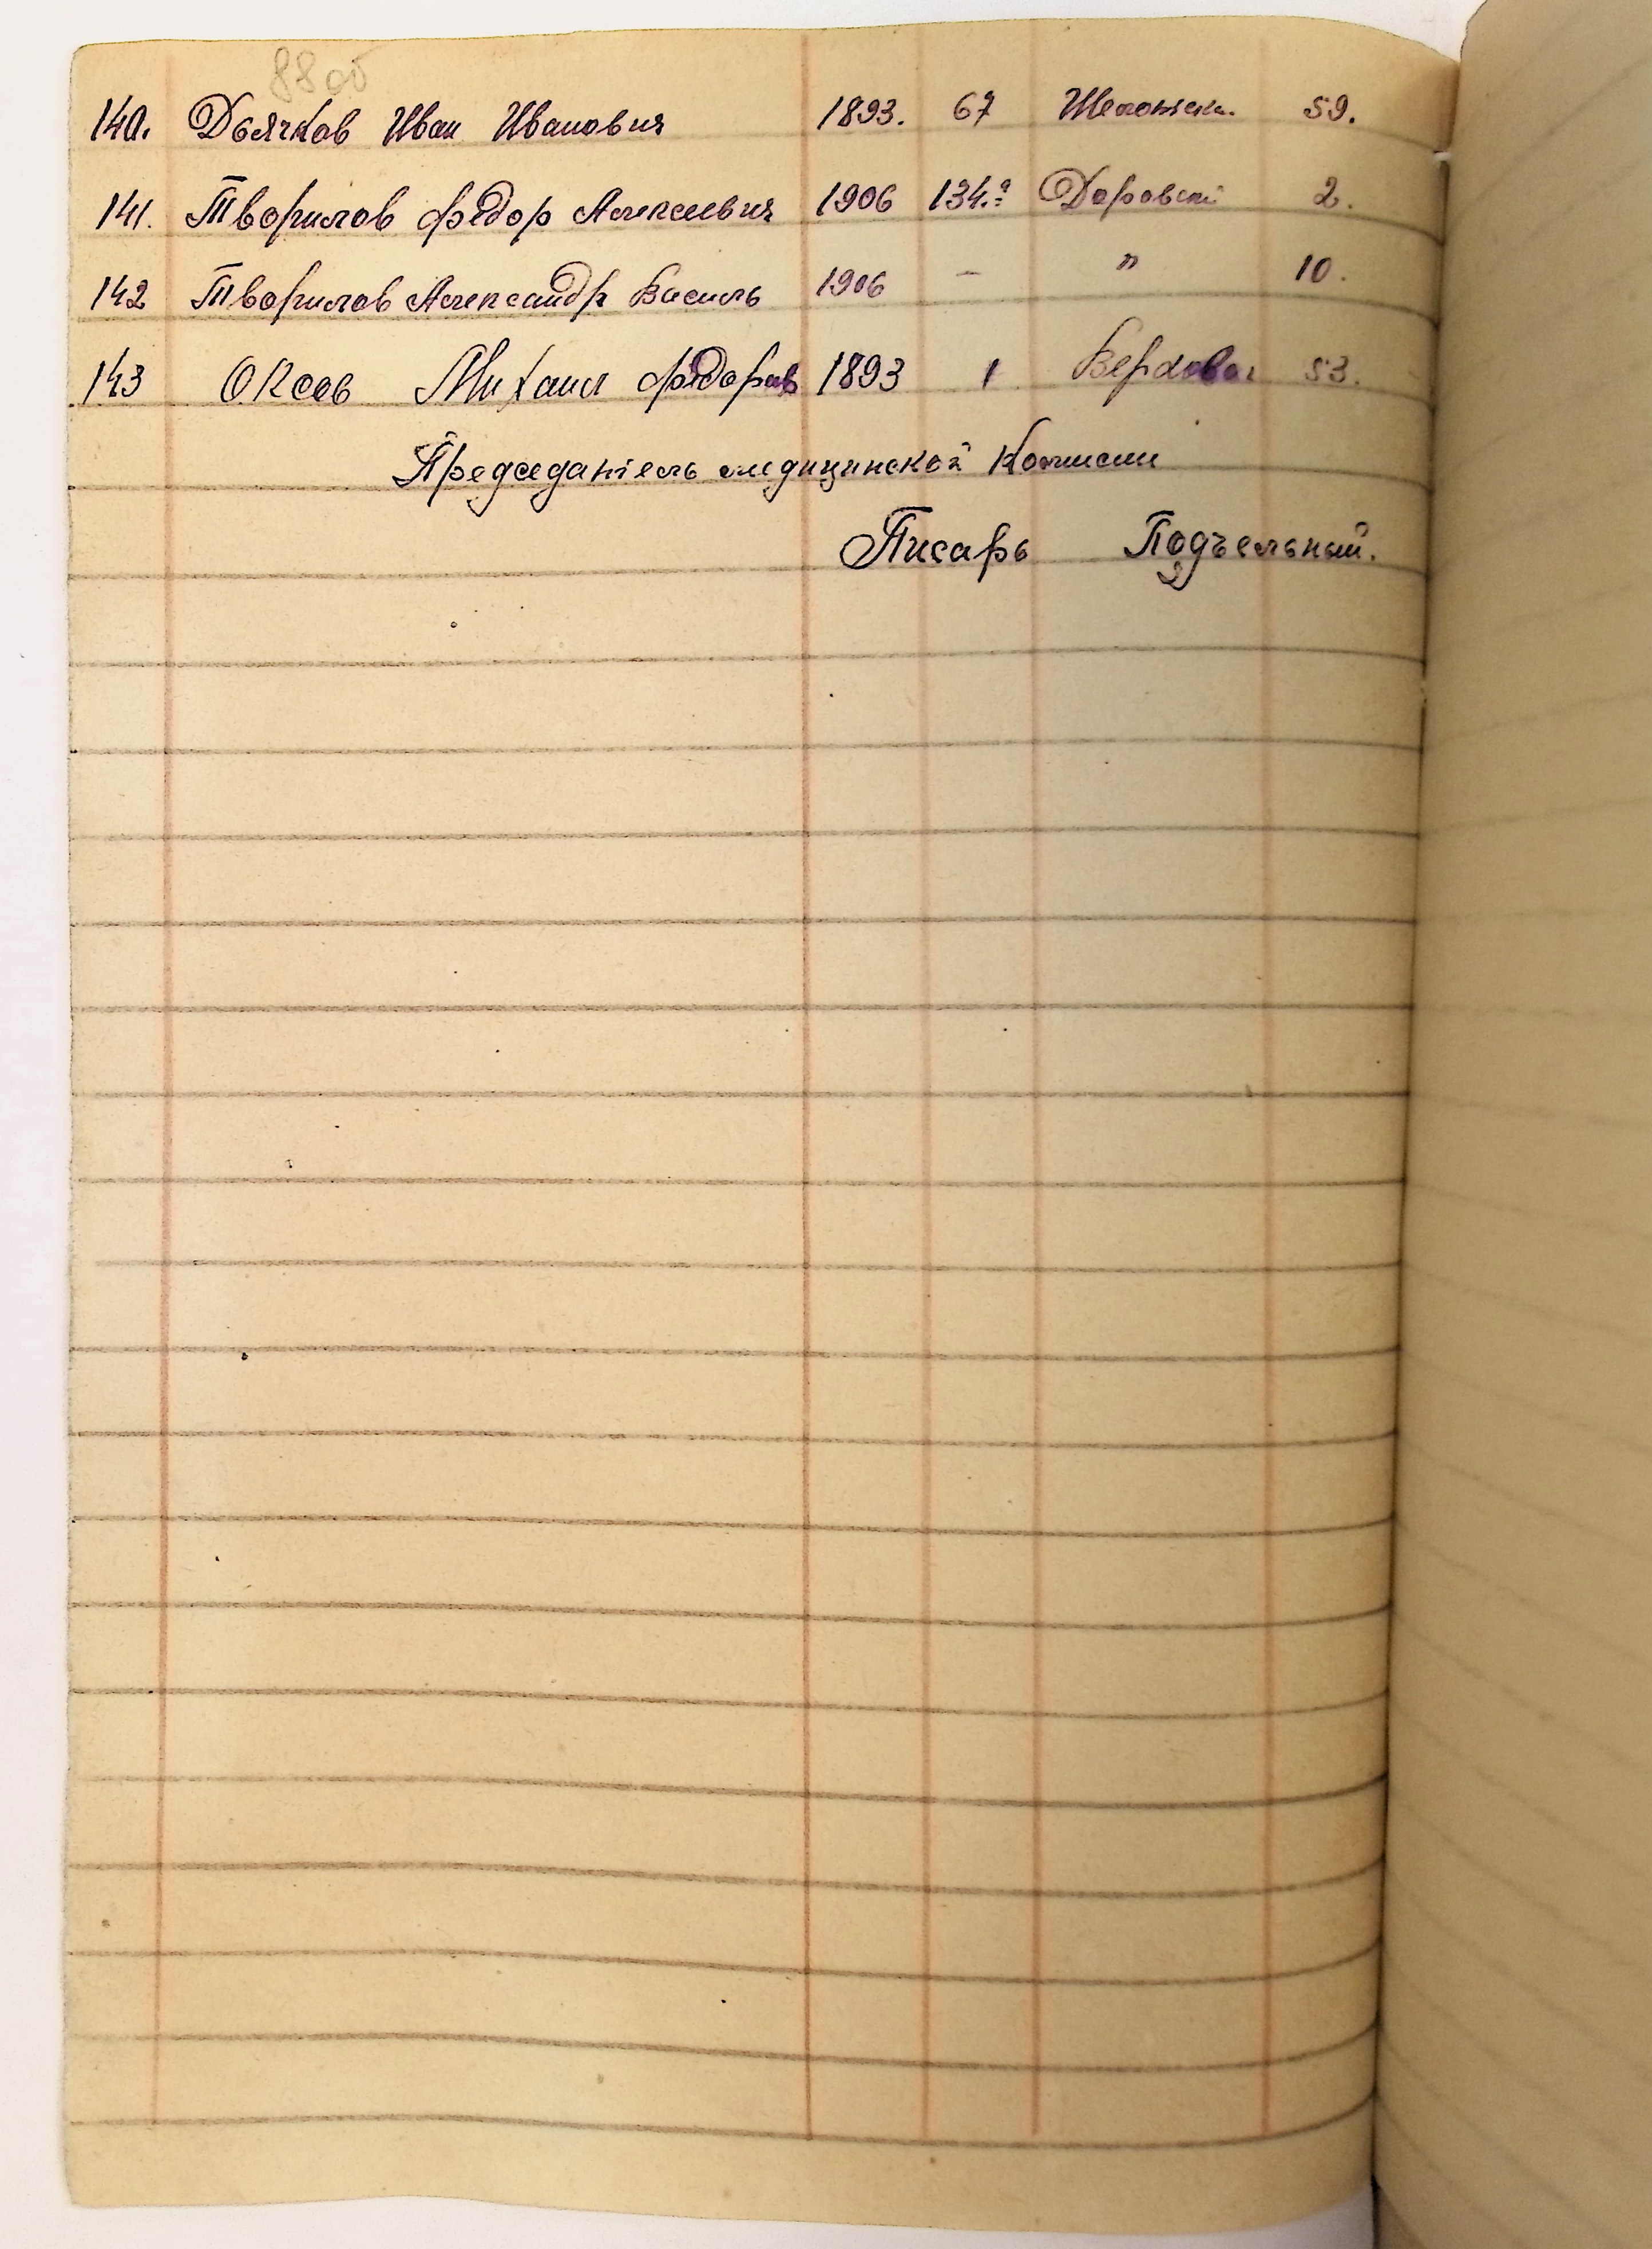 88 об
140. Дьячков Иван Иванович 1893. 67 59.
141. Творилов Фёдор Алексеевич 1906 134.а Даровской 2.
142 Творилов Александр Василь 1906 — " 10.
143 Оксов Михаил Фёдоров 1893 1 53.
Председатель медицинской Комиссии
Писарь Подъельный.